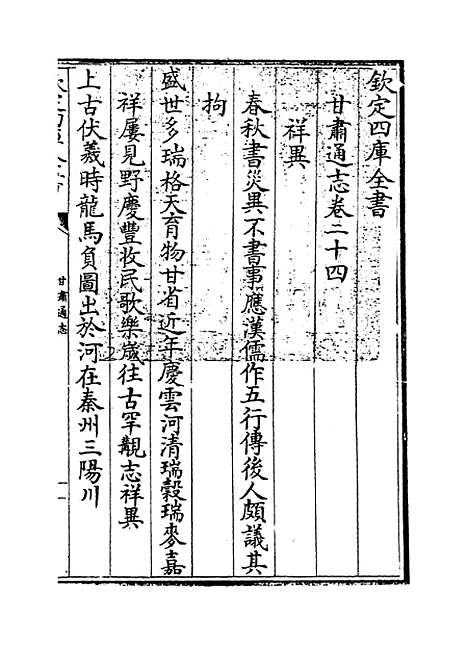 欽定四庫全書
甘肅通志卷二十四
祥異
春秋書災異不書事應漢儒作五行傳後人頗議其
拘
盛世多瑞格天育物甘省近年慶雲河清瑞穀瑞麥嘉
祥屢見野慶豐收民歌樂歲往古罕覯志祥異
上古伏羲時龍馬負圖出於河在秦州三陽川
甘肅通志
一